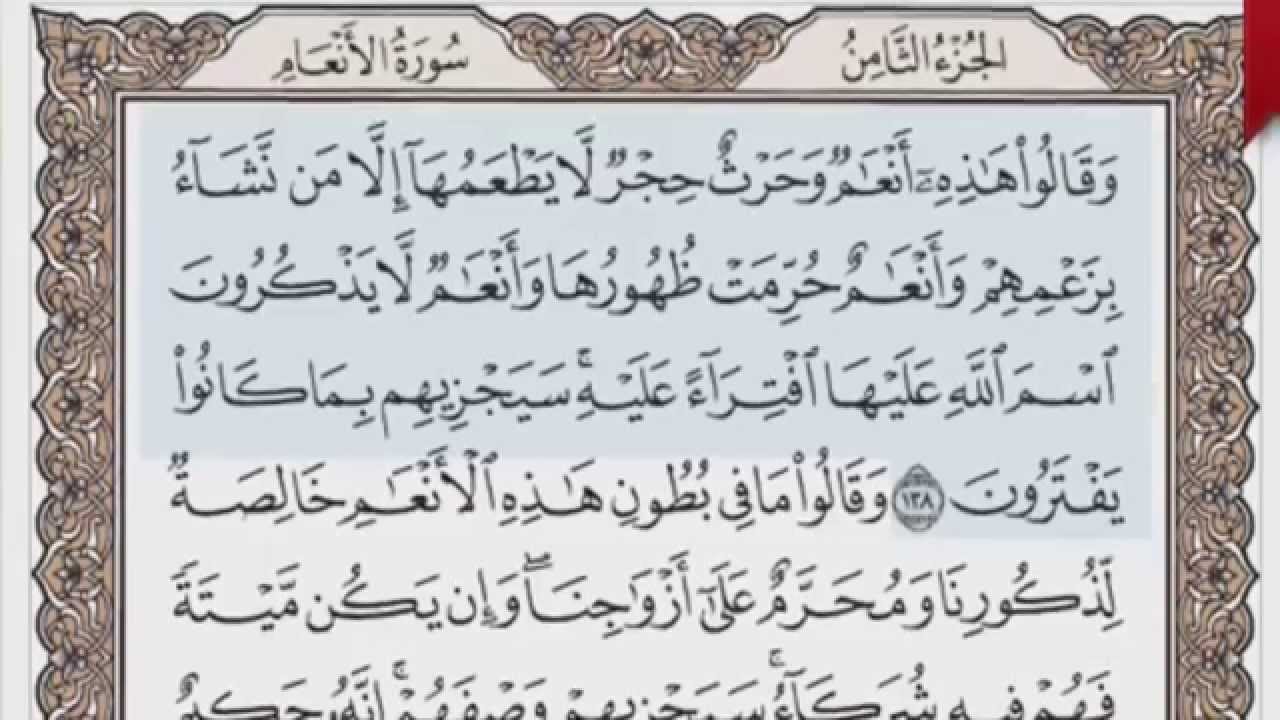 الجُزْءُ الثَّامِنُ
سُورَةُ الأَنْعَامِ
وَقَالُوا۟ هَـٰذِهِۦٓ أَنْعَـٰمٌ وَحَرْثٌ حِجْرٌ لَّا يَطْعَمُهَآ إِلَّا مَن نَّشَآءُ
بِزَعْمِهِمْ وَأَنْعَـٰمٌ حُرِّمَتْ ظُهُورُهَا وَأَنْعَـٰمٌ لَّا يَذْكُرُونَ
ٱسْمَ ٱللَّهِ عَلَيْهَا ٱفْتِرَآءً عَلَيْهِ ۚ سَيَجْزِيهِم بِمَا كَانُوا۟
يَفْتَرُونَ ١٣٨ وَقَالُوا۟ مَا فِى بُطُونِ هَـٰذِهِ ٱلْأَنْعَـٰمِ خَالِصَةٌ
لِّذُكُورِنَا وَمُحَرَّمٌ عَلَىٰٓ أَزْوَٰجِنَا ۖ وَإِن يَكُن مَّيْتَةً
فَهُمْ فِيهِ شُرَكَآءُ ۚ سَيَجْزِيهِمْ وَصْفَهُمْ ۚ إِنَّهُۥ حَكِيمٌ